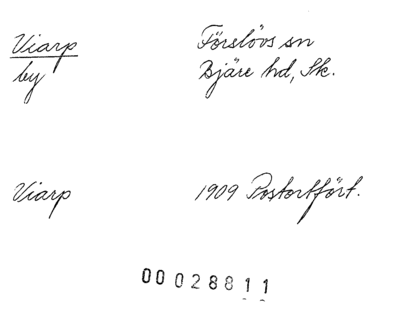 Viarp Förslövs sn
by Bjäre hd, Sk.
Viarp 1909 Postortfört.
00028811